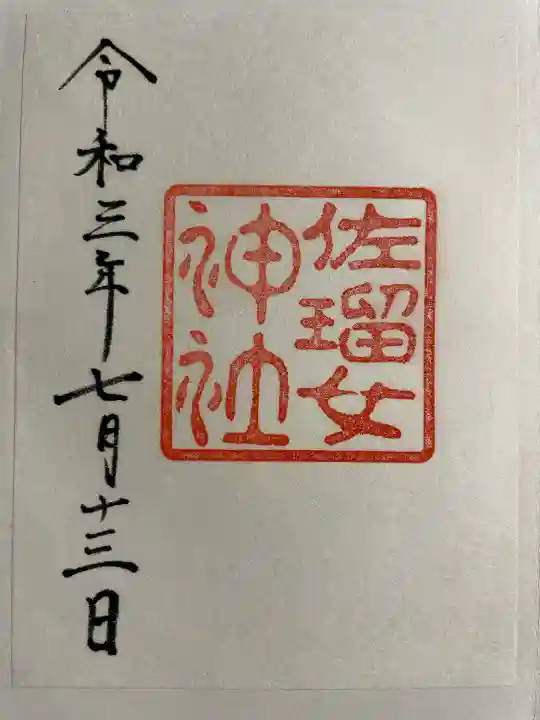 佐瑠女
神社
令和三年七月十三日